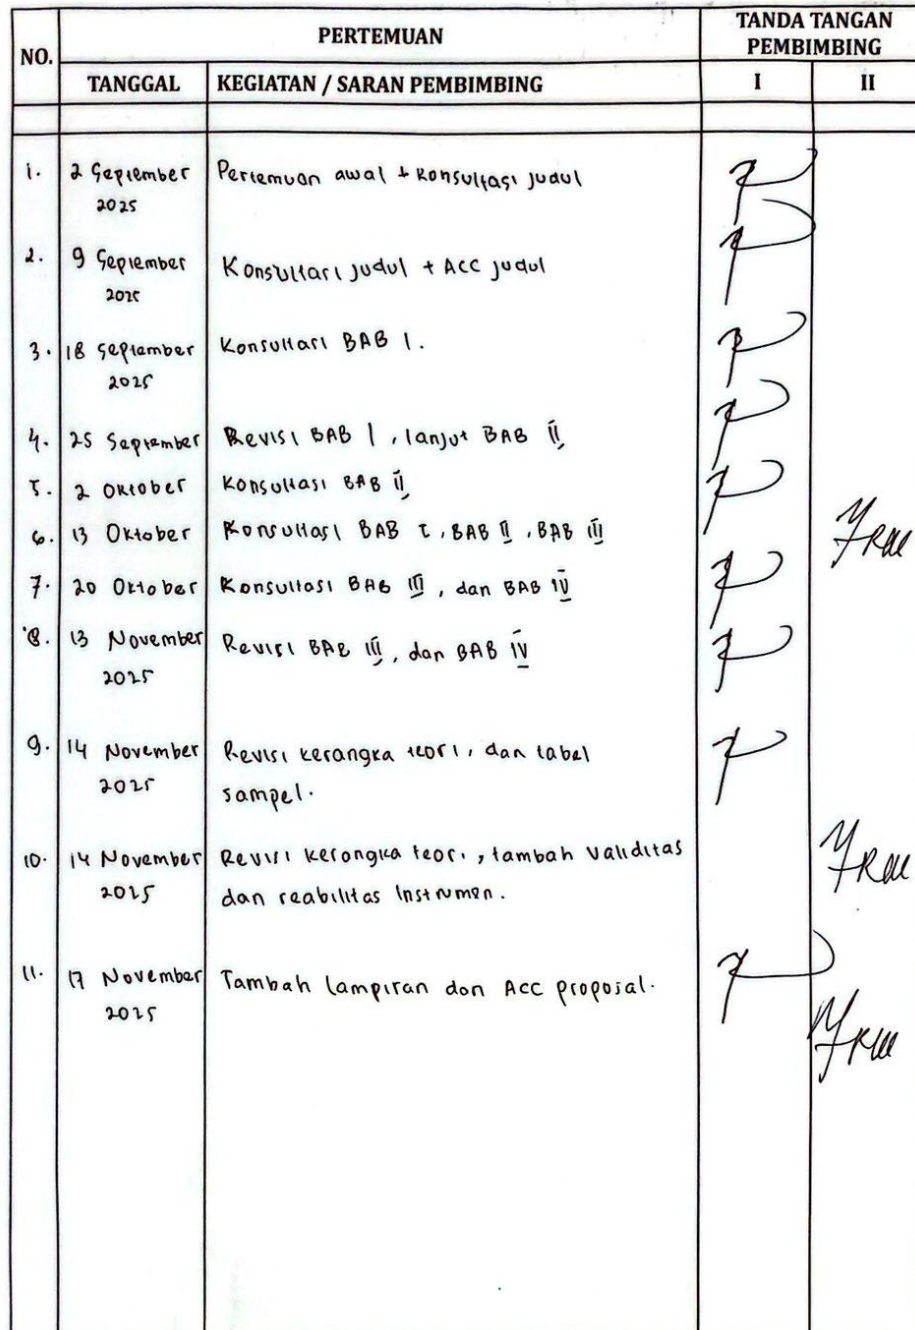 NO. PERTEMUAN TANDA TANGAN PEMBIMBING
TANGGAL KEGIATAN / SARAN PEMBIMBING I II
1. 2 September 2025 Pertemuan awal + Konsultasi judul
2. 9 September 2025 Konsultasi judul + ACC judul
3. 18 September 2025 Konsultasi BAB I.
4. 25 September Revisi BAB I, lanjut BAB II
5. 2 Oktober Konsultasi BAB II
6. 13 Oktober Konsultasi BAB I, BAB II, BAB III
7. 20 Oktober Konsultasi BAB III, dan BAB IV
8. 13 November 2025 Revisi BAB III, dan BAB IV
9. 14 November 2025 Revisi kerangka teori, dan tabel
sampel.
10. 14 November 2025 Revisi kerangka teori, tambah validitas
dan reabilitas Instrumen.
11. 17 November 2025 Tambah lampiran dan Acc proposal.